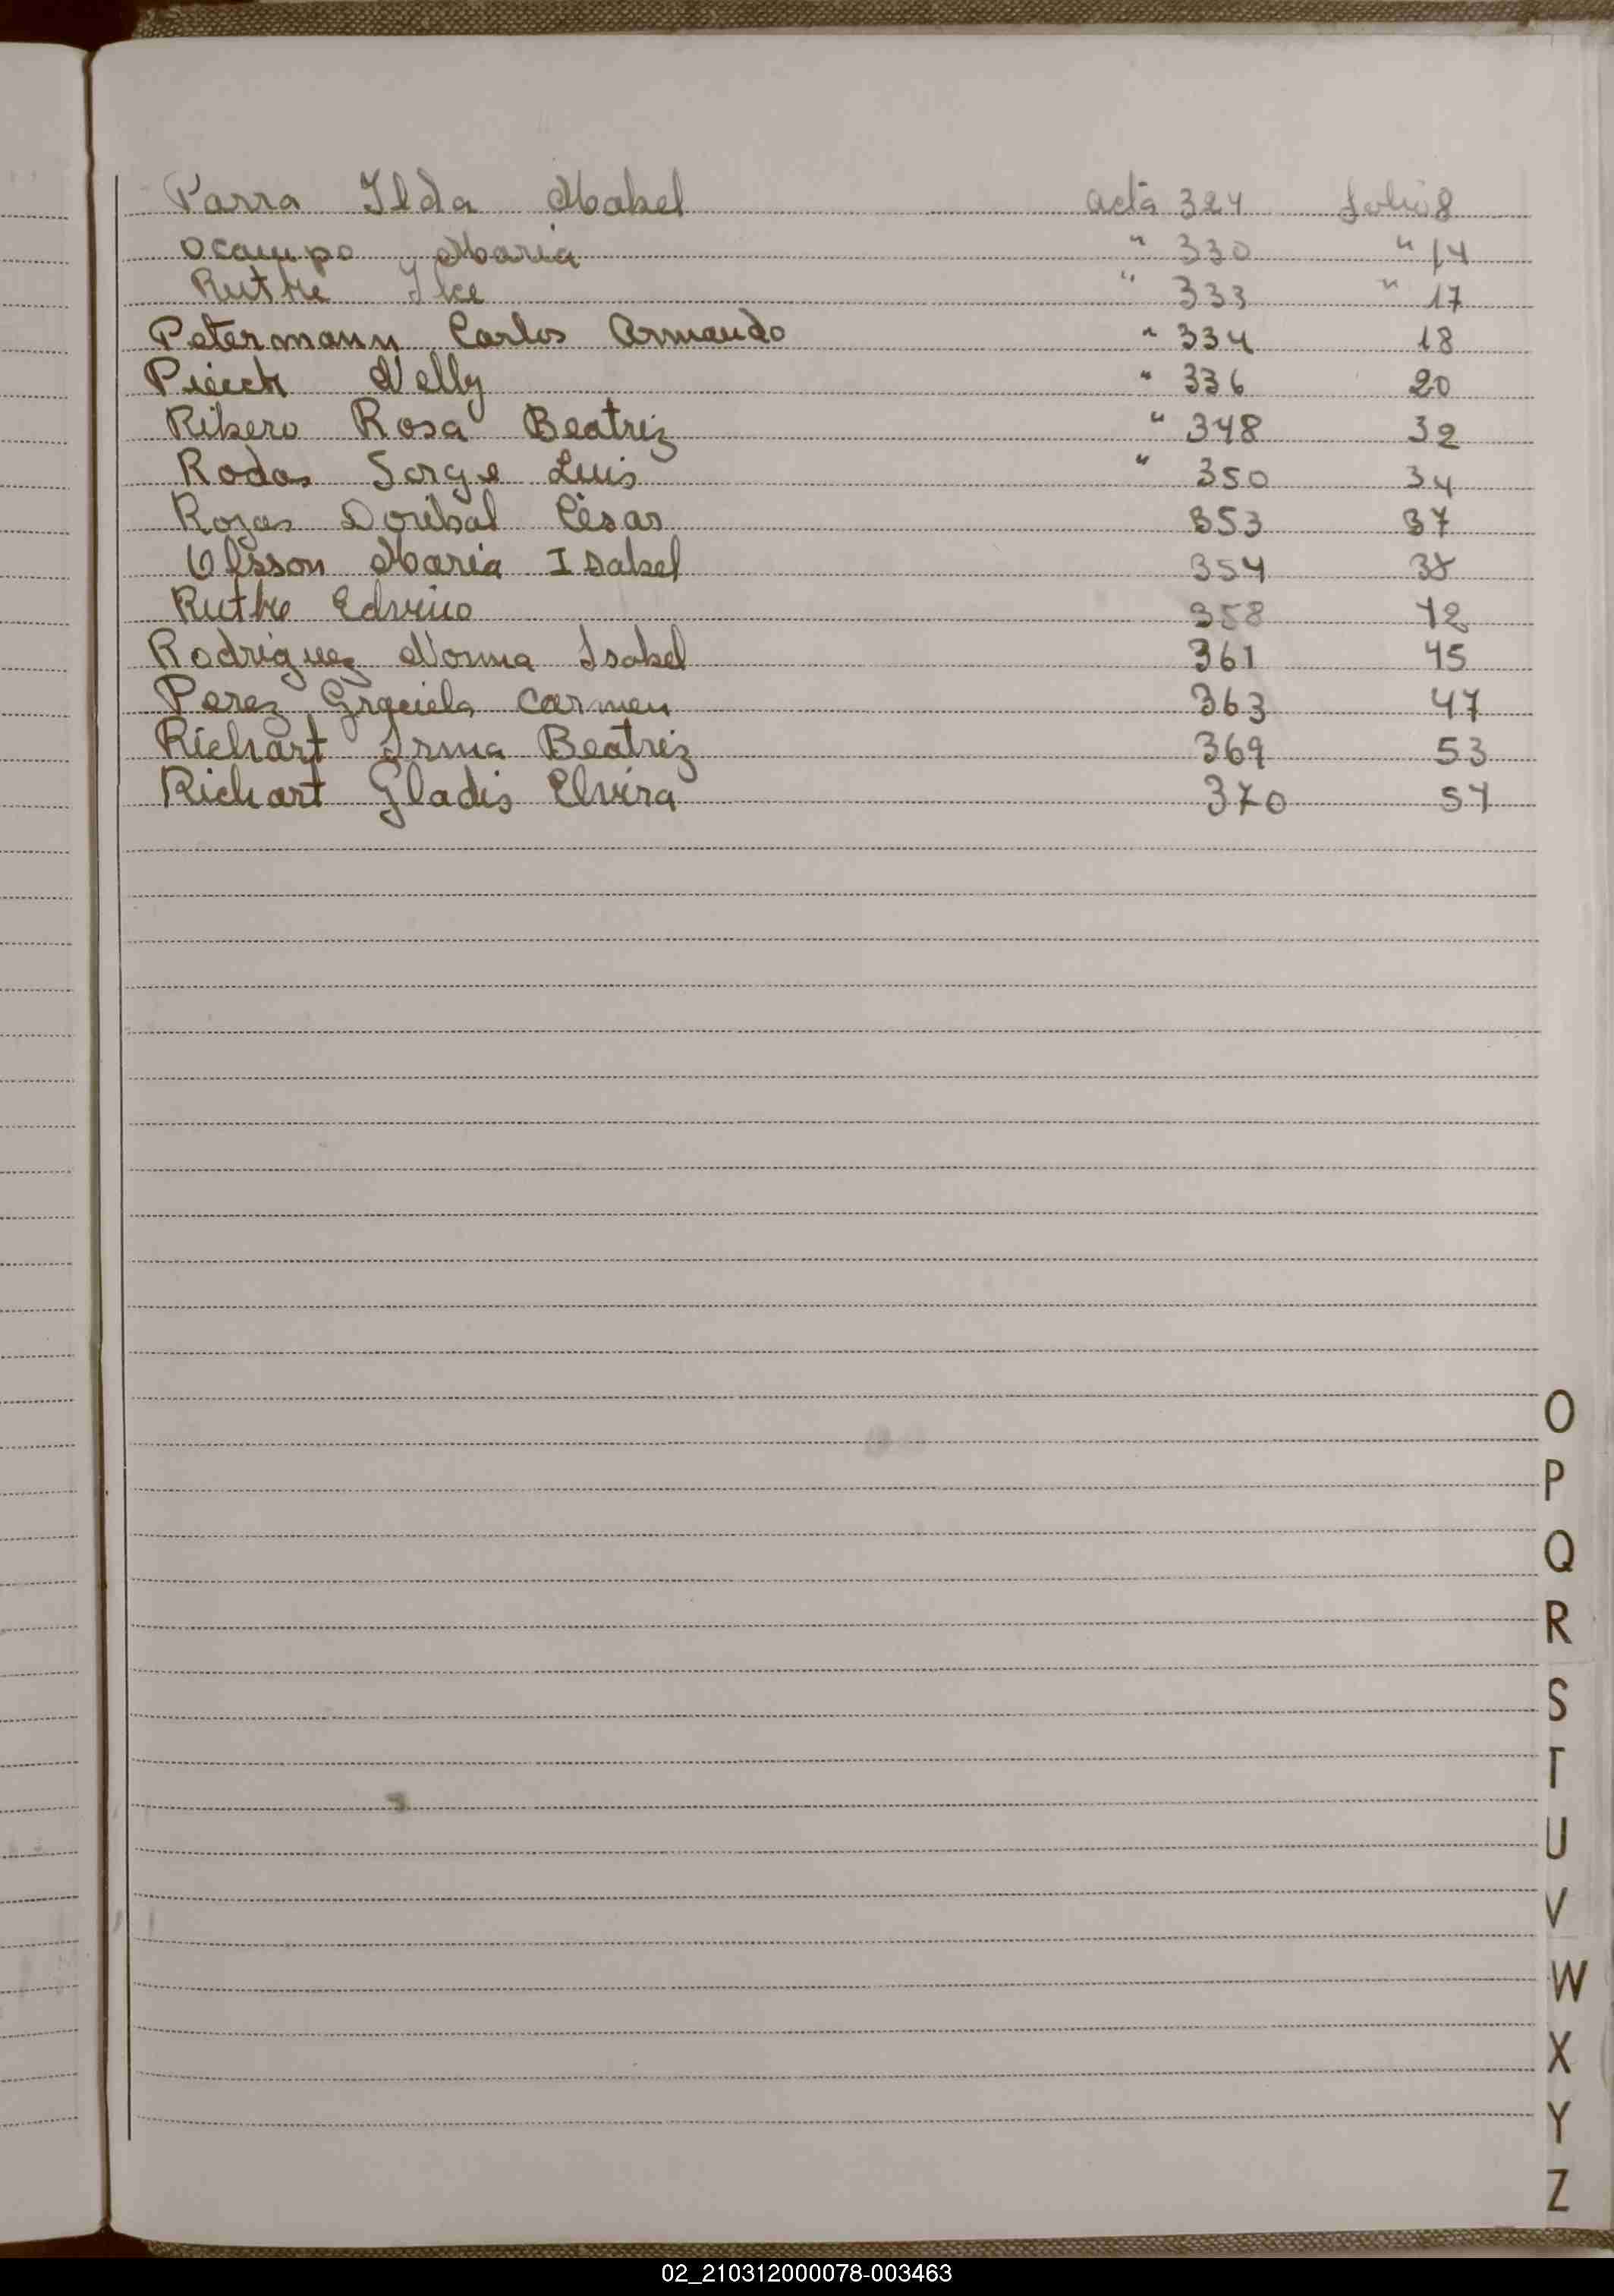 Parra Ilda Mabel acta 324 folio 8
Ocampo Maria " 330 " 14
Ruthe Ilce " 333 " 17
Petermann Carlos Armando " 334 18
Nelly " 336 20
Ribero Rosa Beatriz " 348 32
Rodas Jorge Luis " 350 34
Rojas Doribal César 353 37
Olsson Maria Isabel 354 38
Ruthe Edvino 358 42
Rodriguez Norma Isabel 361 45
Perez Graciela Carmen 363 47
Richart Irma Beatriz 369 53
Richart Gladis Elvira 370 54
O
P
Q
R
S
T
U
V
W
X
Y
Z
02_210312000078-003463